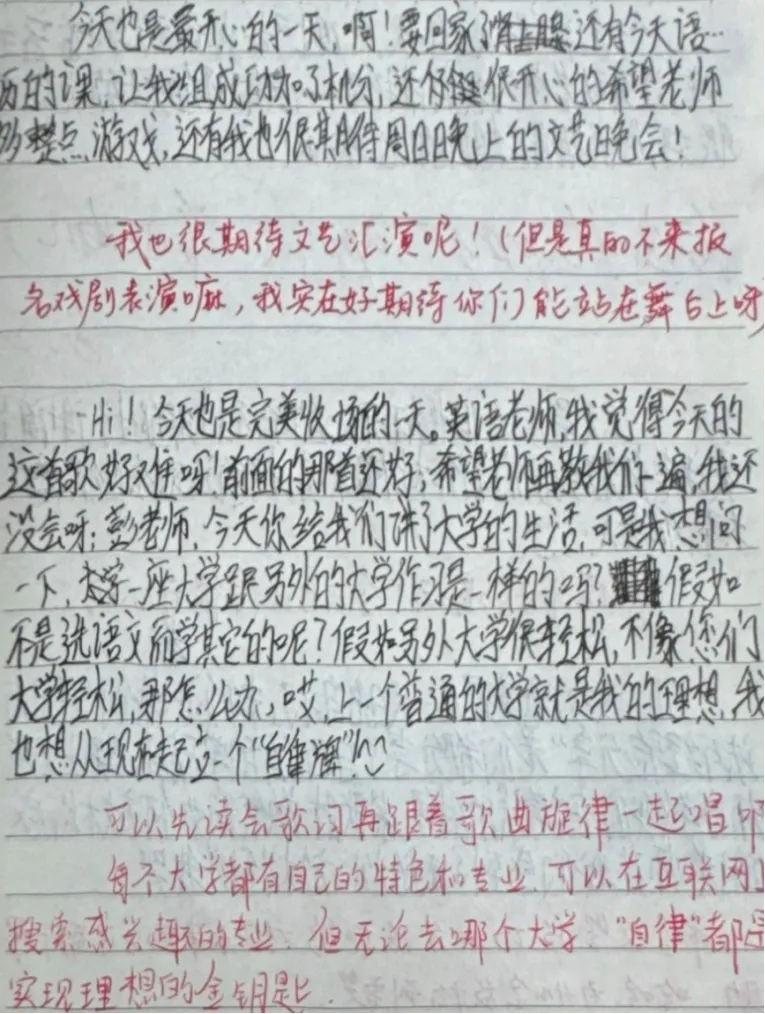 今天也是最开心的一天,啊!要回家了 还有今天语
的课,让我组成功加了机分,还 很开心的希望老师
多整点游戏,还有我也很期待周日晚上的文艺晚会!
我也很期待文艺汇演呢!(但是真的不来报
名戏剧表演嘛,我实在好期待你们能站在舞台上呀
Hi!今天也是完美收场的一天。英语老师,我觉得今天的
这首歌好难呀!前面的那首还好,希望老师再教我们一遍,我还
没会呀;彭老师,今天你给我们讲了大学的生活,可是我想问
一下,大学一座大学跟另外的大学作习是一样的吗?假如
不是选语文而学其它的呢?假如另外大学很轻松,不像您们
大学轻松,那怎么办,哎,上一个普通的大学就是我的理想,我
也想从现在起立一个“自律牌”!
可以先读会歌词再跟着歌曲旋律一起唱
每个大学都有自己的特色和专业,可以在互联网上
搜索感兴趣的专业,但无论去哪个大学“自律”都是
实现理想的金钥匙.